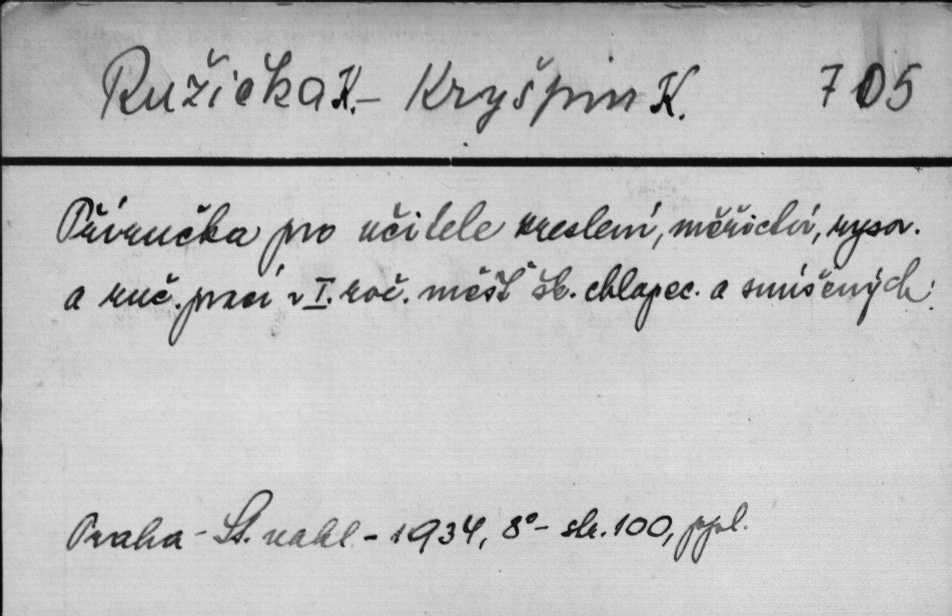 Ružička K. - Kryšpín K. 705
Příručka pro učitele kreslení, měřictví, rysov.
a ruč. prací v I. roč. měšť šk. chlapec. a smíšených.
Praha - St. nakl. - 1934, 8° - str. 100, ppl.